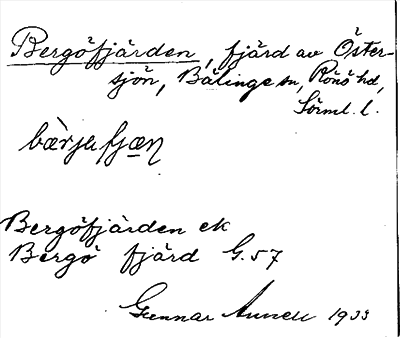 Bergöfjärden, fjärd av Öster-
sjön, Bälinge sn, Rönö hd,
Sörml. l.
bærjafjæɳ
Bergöfjärden ek
Bergö fjärd G.57
Gunnar 1933